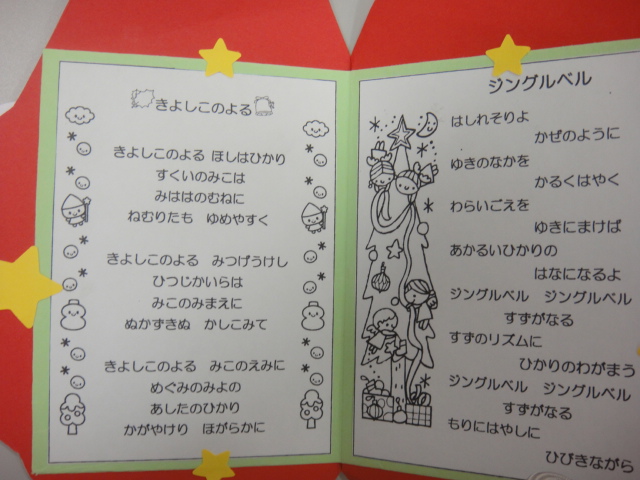 きよしこのよる
きよしこのよる ほしはひかり
すくいのみこは
みははのむねに
ねむりたも ゆめやすく
きよしこのよる みつげうけし
ひつじかいらは
みこのみまえに
ぬかずきぬ かしこみて
きよしこのよる みこのえみに
めぐみのみよの
あしたのひかり
かがやけり ほがらかに
ジングルベル
はしれそりよ
かぜのように
ゆきのなかを
かるくはやく
わらいごえを
ゆきにまけば
あかるいひかりの
はなになるよ
ジングルベル ジングルベル
すずがなる
すずのリズムに
ひかりのわがまう
ジングルベル ジングルベル
すずがなる
もりにはやしに
ひびきながら